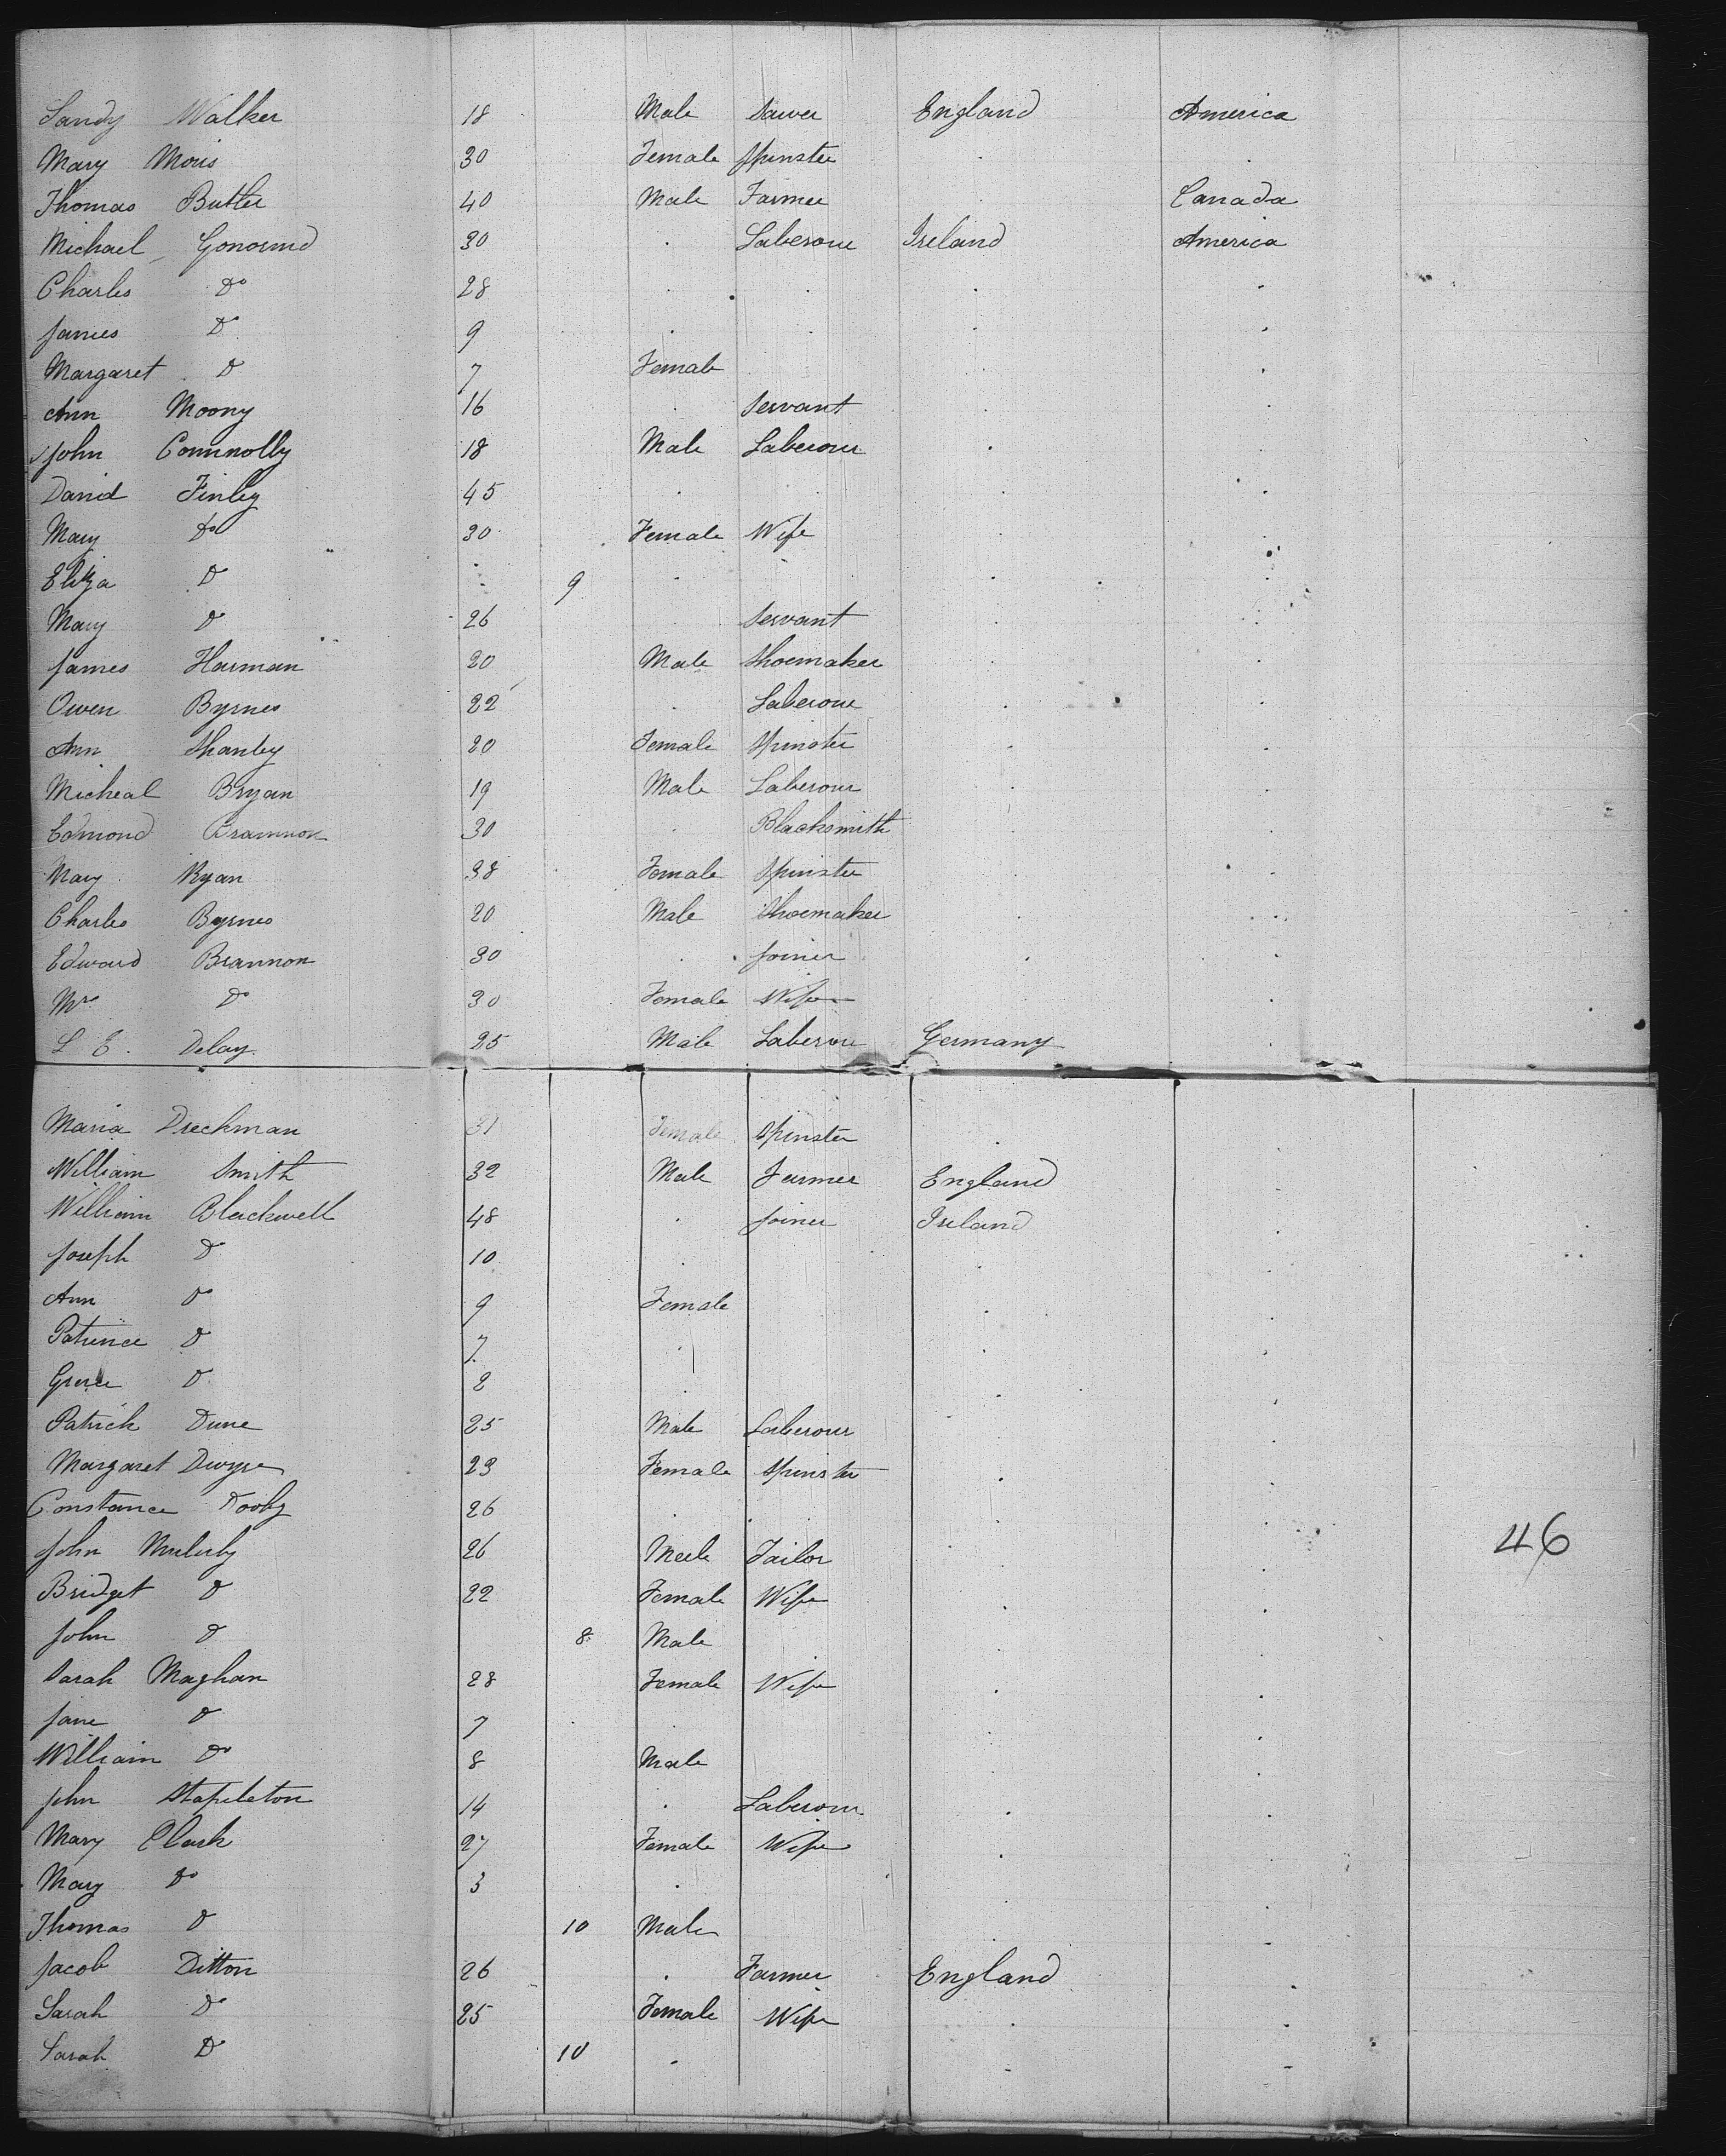 Sandy Walker 18 Male Sawer England America
Mary Moris 30 Female Spinster . .
Thomas Butler 40 Male Farmer . Canada
Michael 30 . Laberour Ireland America
Charles Do 28 . . . .
James Do 9 . . . .
Margaret Do 7 Female . .
Ann Moony 16 . Servant . .
John Connnolly 18 Male Laberour . .
David Finley 45 . . . .
Mary Do 30 Female Wife . .
Eliza Do 9 . . . .
Mary Do 26 Servant . .
James Harman 20 Male Shoemaker . .
Owen Byrnes 22 . Laberour . .
Ann Shanley 20 Female Spinster . .
Micheal Bryan 19 Male Laberour . .
Edmond Brannon 30 . Blacksmith . .
Mary Ryan 38 Female Spinster . .
Charles Byrnes 20 Male Shoemaker . .
Edward Brannon 30 . Joiner . .
Mrs Do 30 Female Wife . .
L E. Delay 25 Male Laberour Germany .
Maria Dreckman 31 Female Spinster .
William Smith 32 Male Farmer England
William Blackwell 48 . Joiner Ireland .
Joseph Do 10 . . .
Ann Do 9 Female . .
Patience Do 7 . . .
Grace Do 2 . . .
Patrick Dune 25 Male Laberour . .
Margaret Dwyre 23 Female Spinster . .
Constance 26 . . . .
John 26 Male Tailor . .
Bridget Do 22 Female Wife . .
John Do 8 Male . .
Sarah Maghan 28 Female Wife . .
Jane Do 7 . . .
William Do 8 Male . .
John Stapleton 14 . Laberour . .
Mary Clark 27 Female Wife . .
Mary Do 3 . . .
Thomas Do 10 Male . .
Jacob Ditton 26 . Farmer England .
Sarah Do 25 Female Wife . .
Sarah Do 10 . . .
46